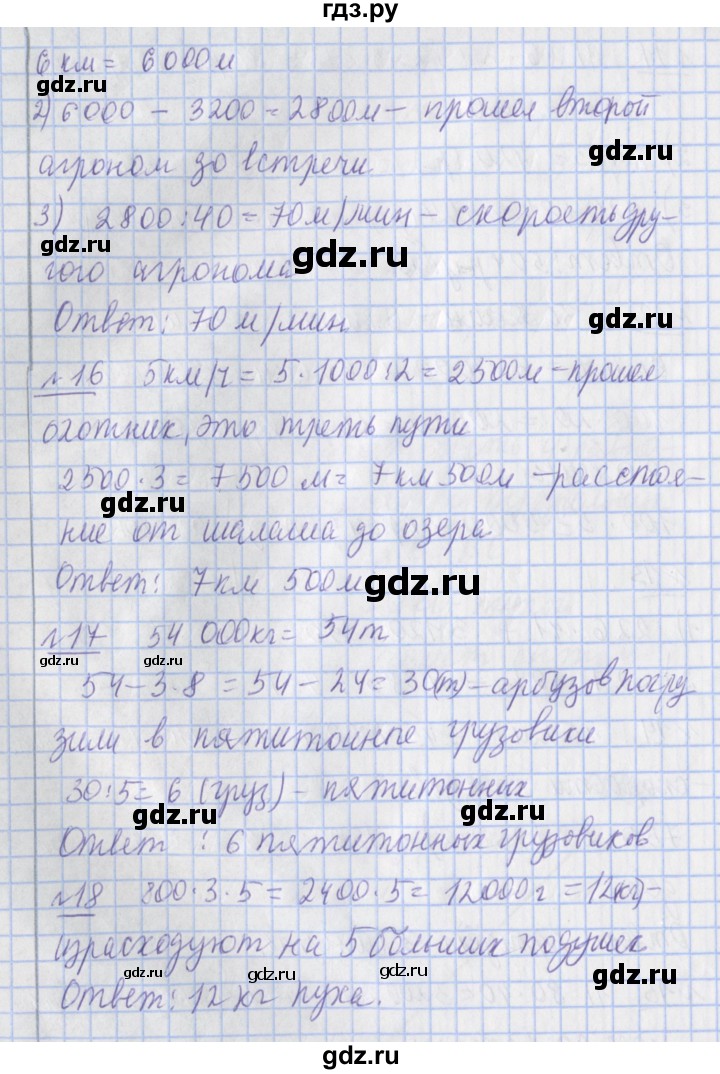 гдз.ру
6 км = 6000 м
gdz.ru
2) 6000 - 3200 = 2800 м - прошел второй
gdz.ru
агроном до встречи
3) 2800:40 = 70 м/мин - скорость дру-
gdz.ru
gdz.ru
гого агронома
Ответ: 70 м/мин
gdz.ru
№16 5 км/ч = 5·1000:2 = 2500 м - прошел
охотник, это треть пути
gdz.ru
2500·3 = 7500 м = 7 км 500 м - расстоя-
gdz.ru
ние от шалаша до озера
Ответ: 7 км 500 м
gdz.ru
№17 54 000 кг = 54 т
gdz.ru
gdz.ru
54 - 3·8 = 54 - 24 = 30(т) - арбузов погру
gdz.ru
зили в пятитонные грузовики
30:5 = 6 (груз) - пятитонных
gdz.ru
gdz.ru
Ответ: 6 пятитонных грузовиков
№18 800·3·5 = 2400·5 = 12000 г = 12 кг) -
gdz.ru
израсходуют на 5 больших подушек
gdz.ru
gdz.ru
gdz.ru
gdz.ru
Ответ: 12 кг пуха.
gdz.ru
gdz.ru